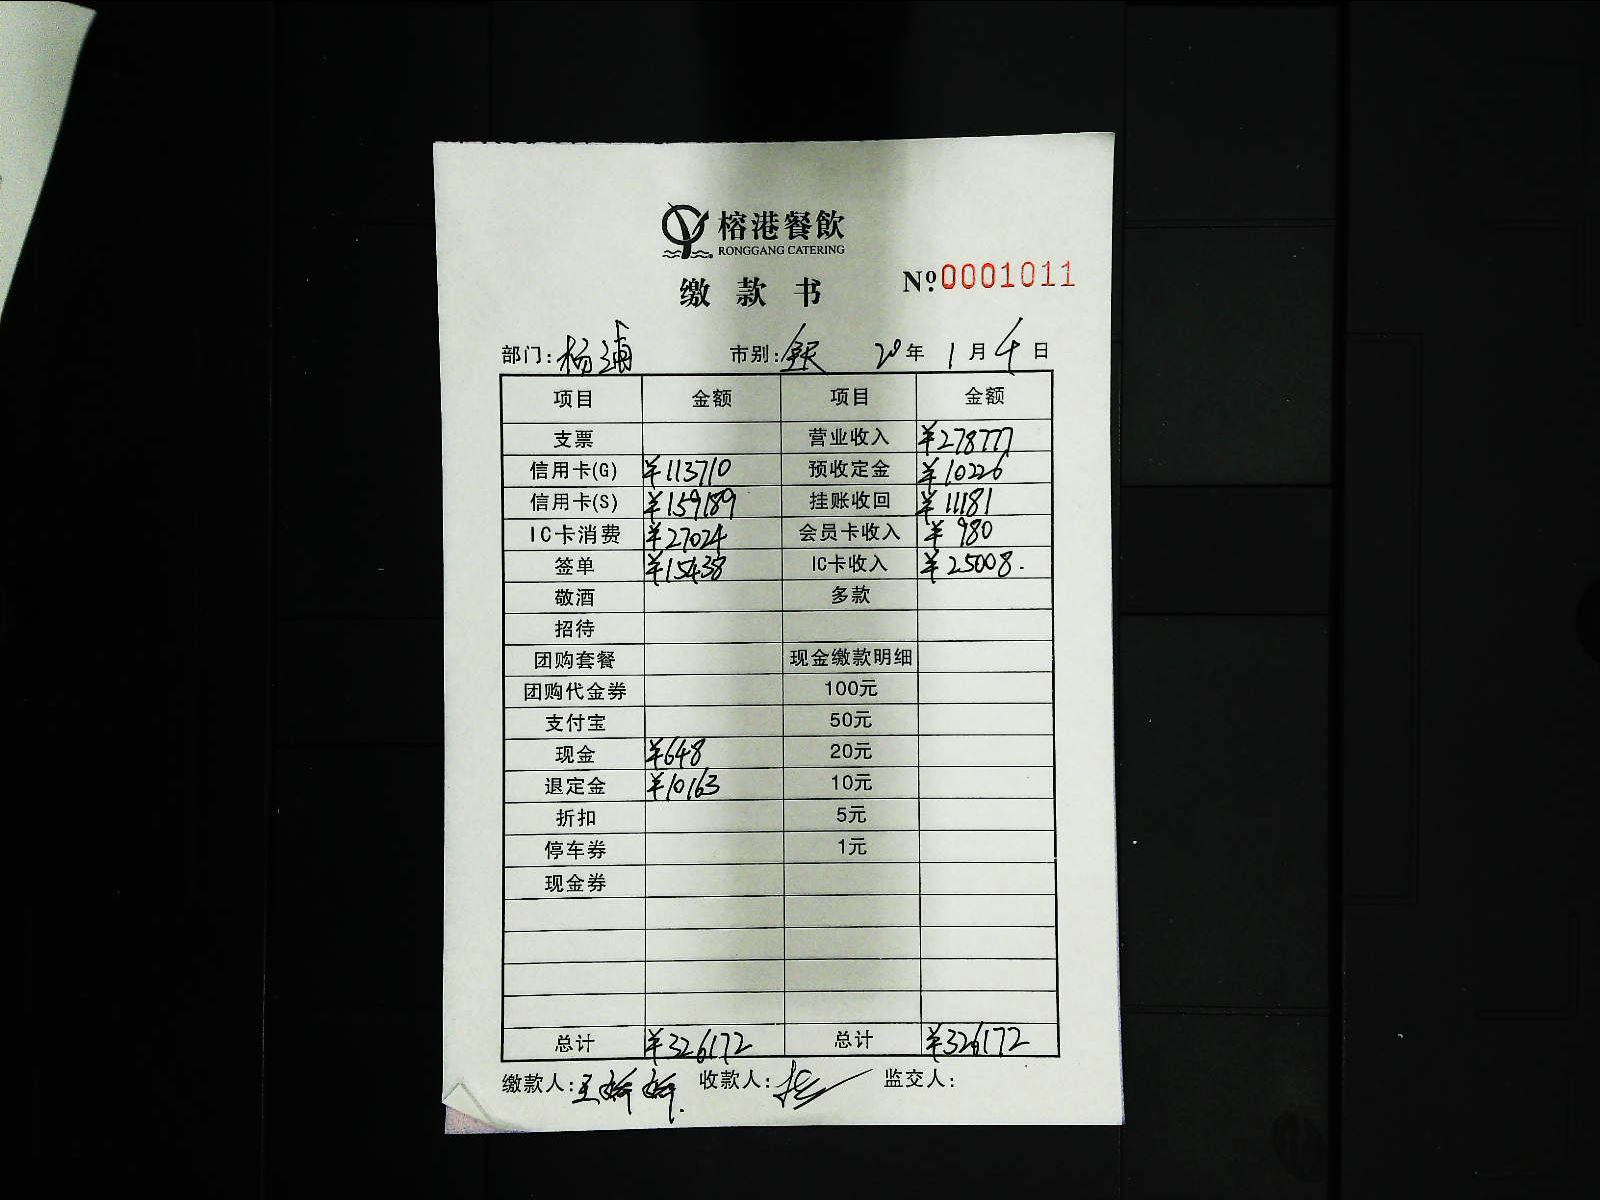 榕港餐飲
RONGGANG CATERING
缴款书 №0001011
部门:杨浦 市别:全天 20年 1月4日
项目 金额 项目 金额
支票 营业收入 ¥278777
信用卡(G) ¥113710 预收定金 ¥10226
信用卡(S) ¥159189 挂账收回 ¥11181
IC卡消费 ¥27024 会员卡收入 ¥980
签单 ¥15438 IC卡收入 ¥25008.
敬酒 多款
招待
团购套餐 现金缴款明细
团购代金券 100元
支付宝 50元
现金 ¥648 20元
退定金 ¥10163 10元
折扣 5元
停车券 1元
现金券
总计 ¥326172 总计 ¥326172
缴款人:王婷婷. 收款人: 监交人: